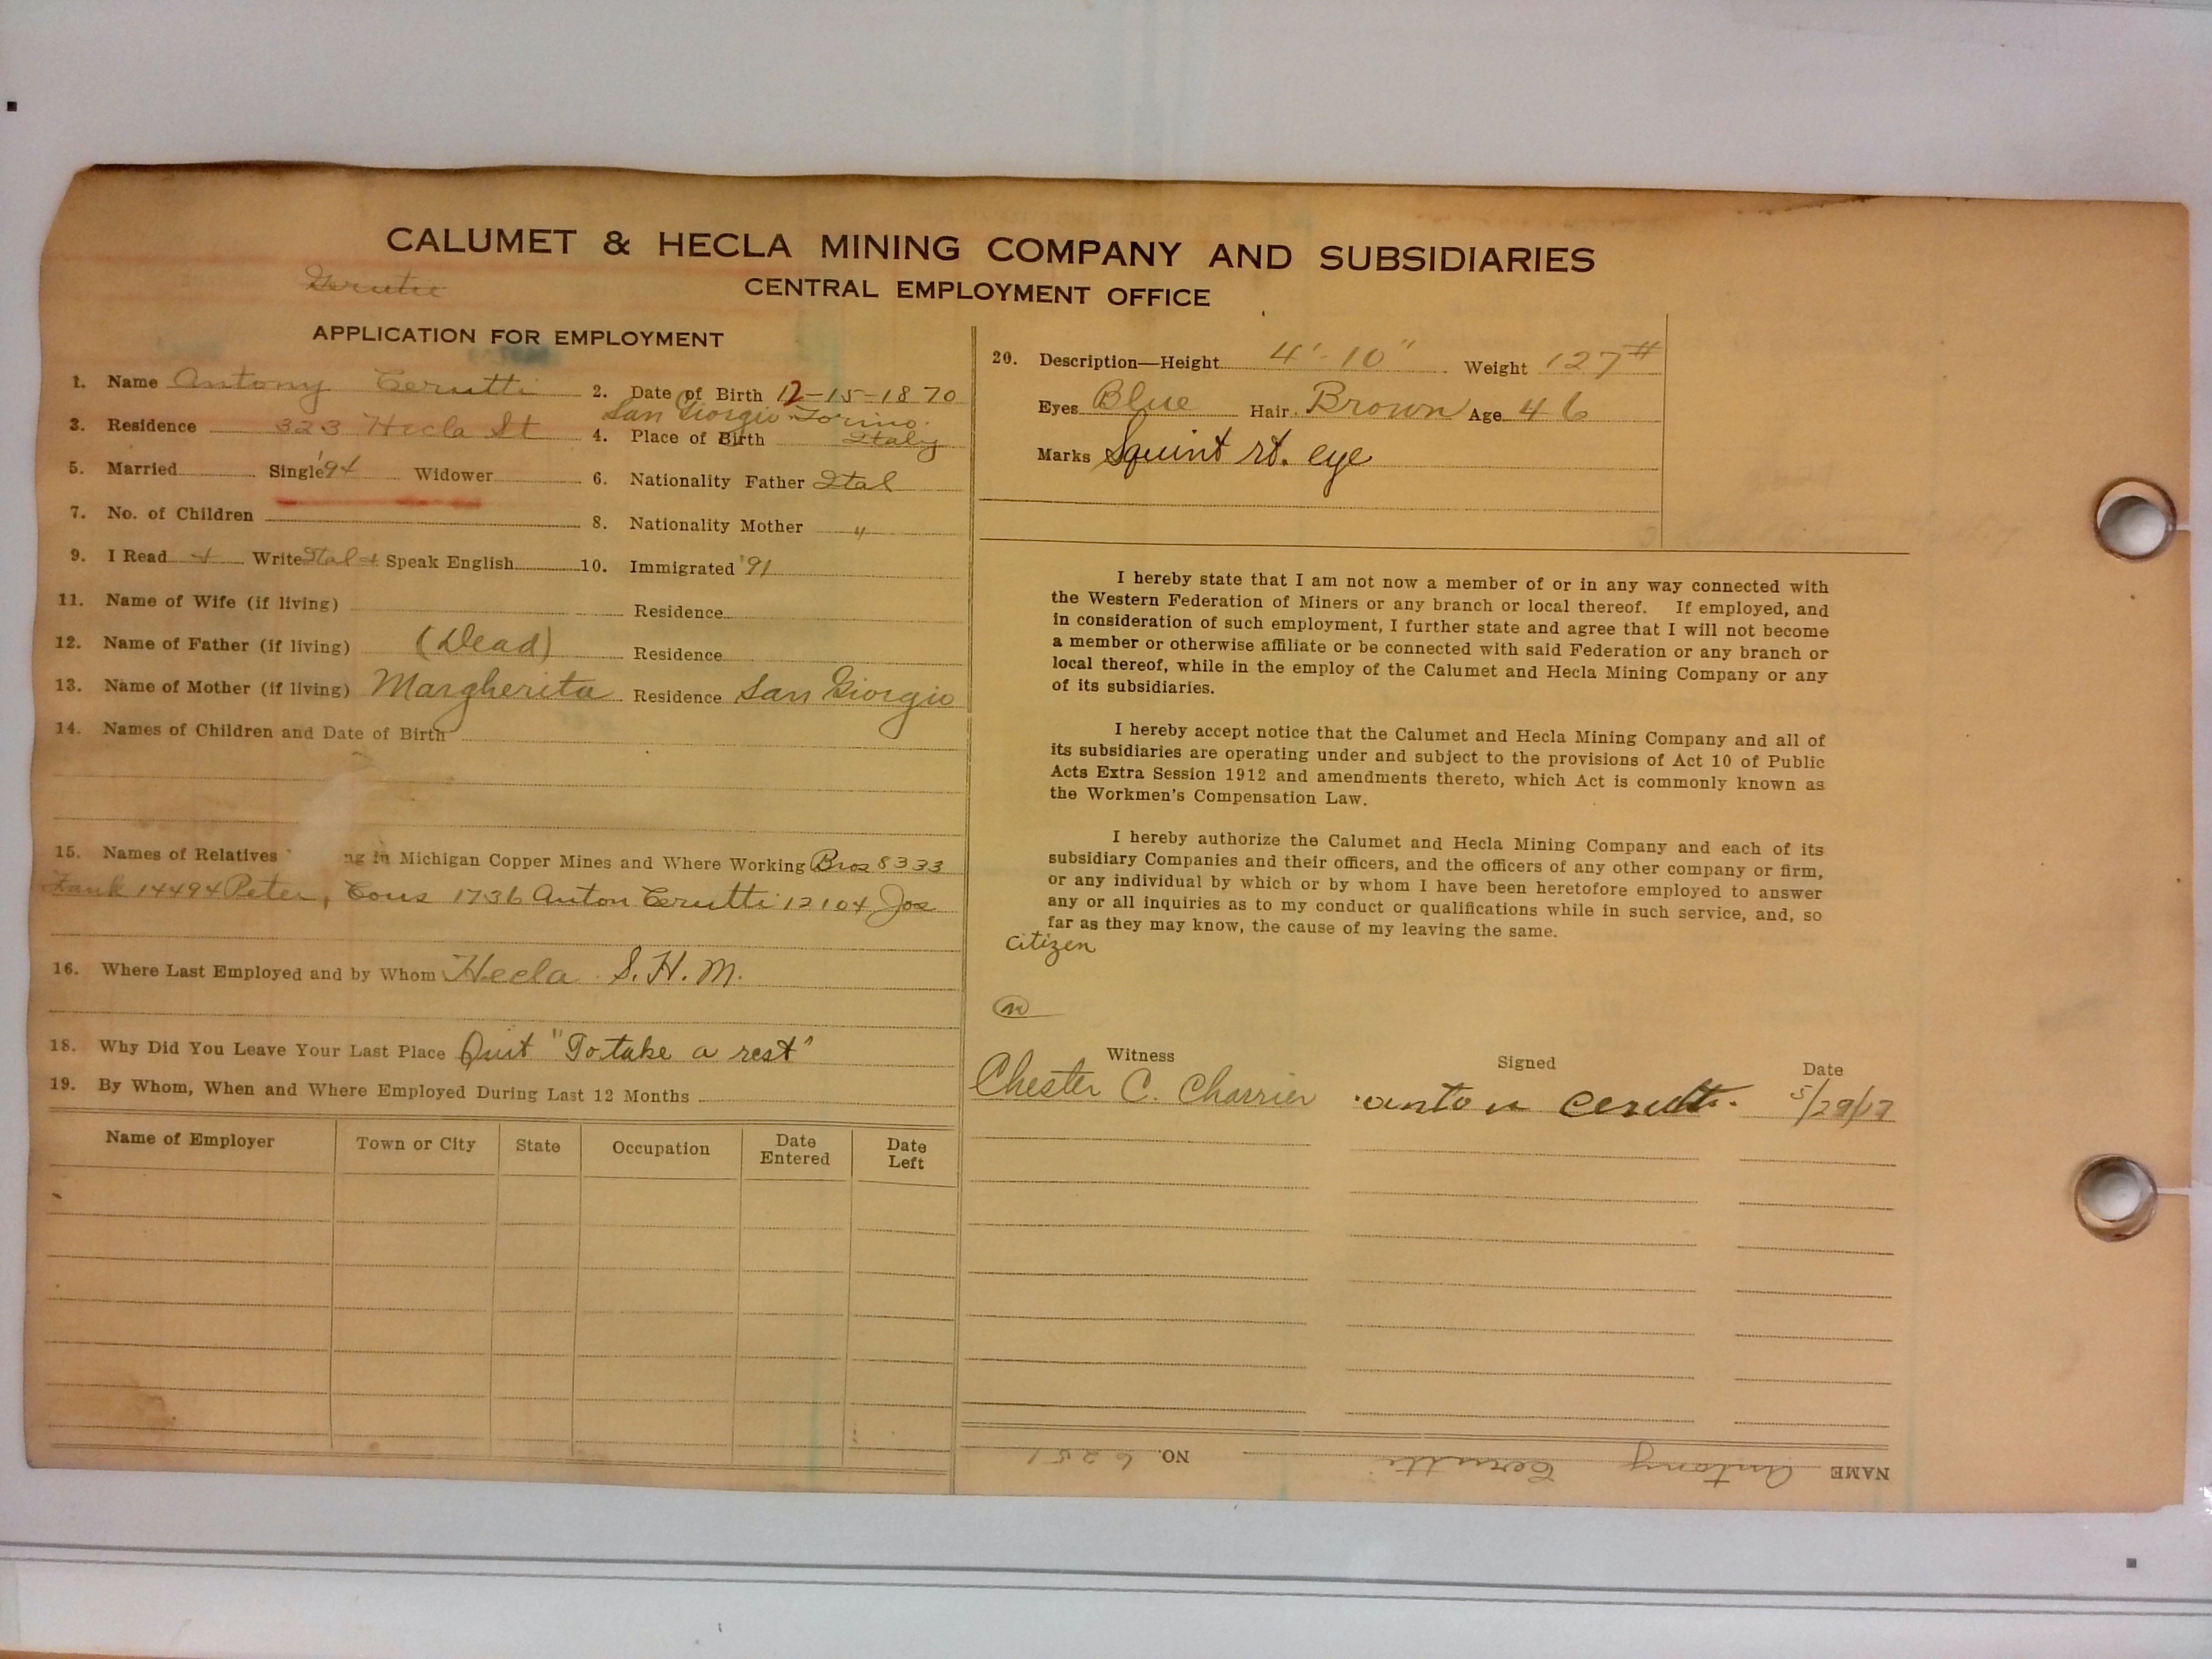 CALUMET & HECLA MINING COMPANY AND SUBSIDIARIES
CENTRAL EMPLOYMENT OFFICE
APPLICATION FOR EMPLOYMENT
1. Name Antony Cerutti 2. Date of Birth 12-15-1870
San Giorgio Torino.
3. Residence 323 Hecla St 4. Place of Birth Italy
5. Married Single Widower 6. Nationality Father Ital
7. No. of Children 8. Nationality Mother "
9. I Read + Write Ital + Speak English 10. Immigrated '91
11. Name of Wife (if living) Residence
12. Name of Father (if living) (Dead) Residence
13. Name of Mother (if living) Margherita Residence San Giorgio
14. Names of Children and Date of Birth
15. Names of Relatives ng in Michigan Copper Mines and Where Working Bros 8333
14494 Peter, Cous 1736 Anton Cerutti 12104 Jos
16. Where Last Employed and by Whom Hecla S. H. M.
18. Why Did You Leave Your Last Place Quit "To take a rest"
19. By Whom, When and Where Employed During Last 12 Months
Name of Employer Town or City State Occupation Date Entered Date Left
20. Description—Height 4'-10" Weight 127#
Eyes Blue Hair Brown Age 46
Marks Squint rt. eye
I hereby state that I am not now a member of or in any way connected with
the Western Federation of Miners or any branch or local thereof. If employed, and
in consideration of such employment, I further state and agree that I will not become
a member or otherwise affiliate or be connected with said Federation or any branch or
local thereof, while in the employ of the Calumet and Hecla Mining Company or any
of its subsidiaries.
I hereby accept notice that the Calumet and Hecla Mining Company and all of
its subsidiaries are operating under and subject to the provisions of Act 10 of Public
Acts Extra Session 1912 and amendments thereto, which Act is commonly known as
the Workmen's Compensation Law.
I hereby authorize the Calumet and Hecla Mining Company and each of its
subsidiary Companies and their officers, and the officers of any other company or firm,
or any individual by which or by whom I have been heretofore employed to answer
any or all inquiries as to my conduct or qualifications while in such service, and, so
far as they may know, the cause of my leaving the same.
Citizen
Witness Signed Date
Chester C. Charrier anton cerutti. 5/29/17
NAME Antony Cerutti NO. 6251